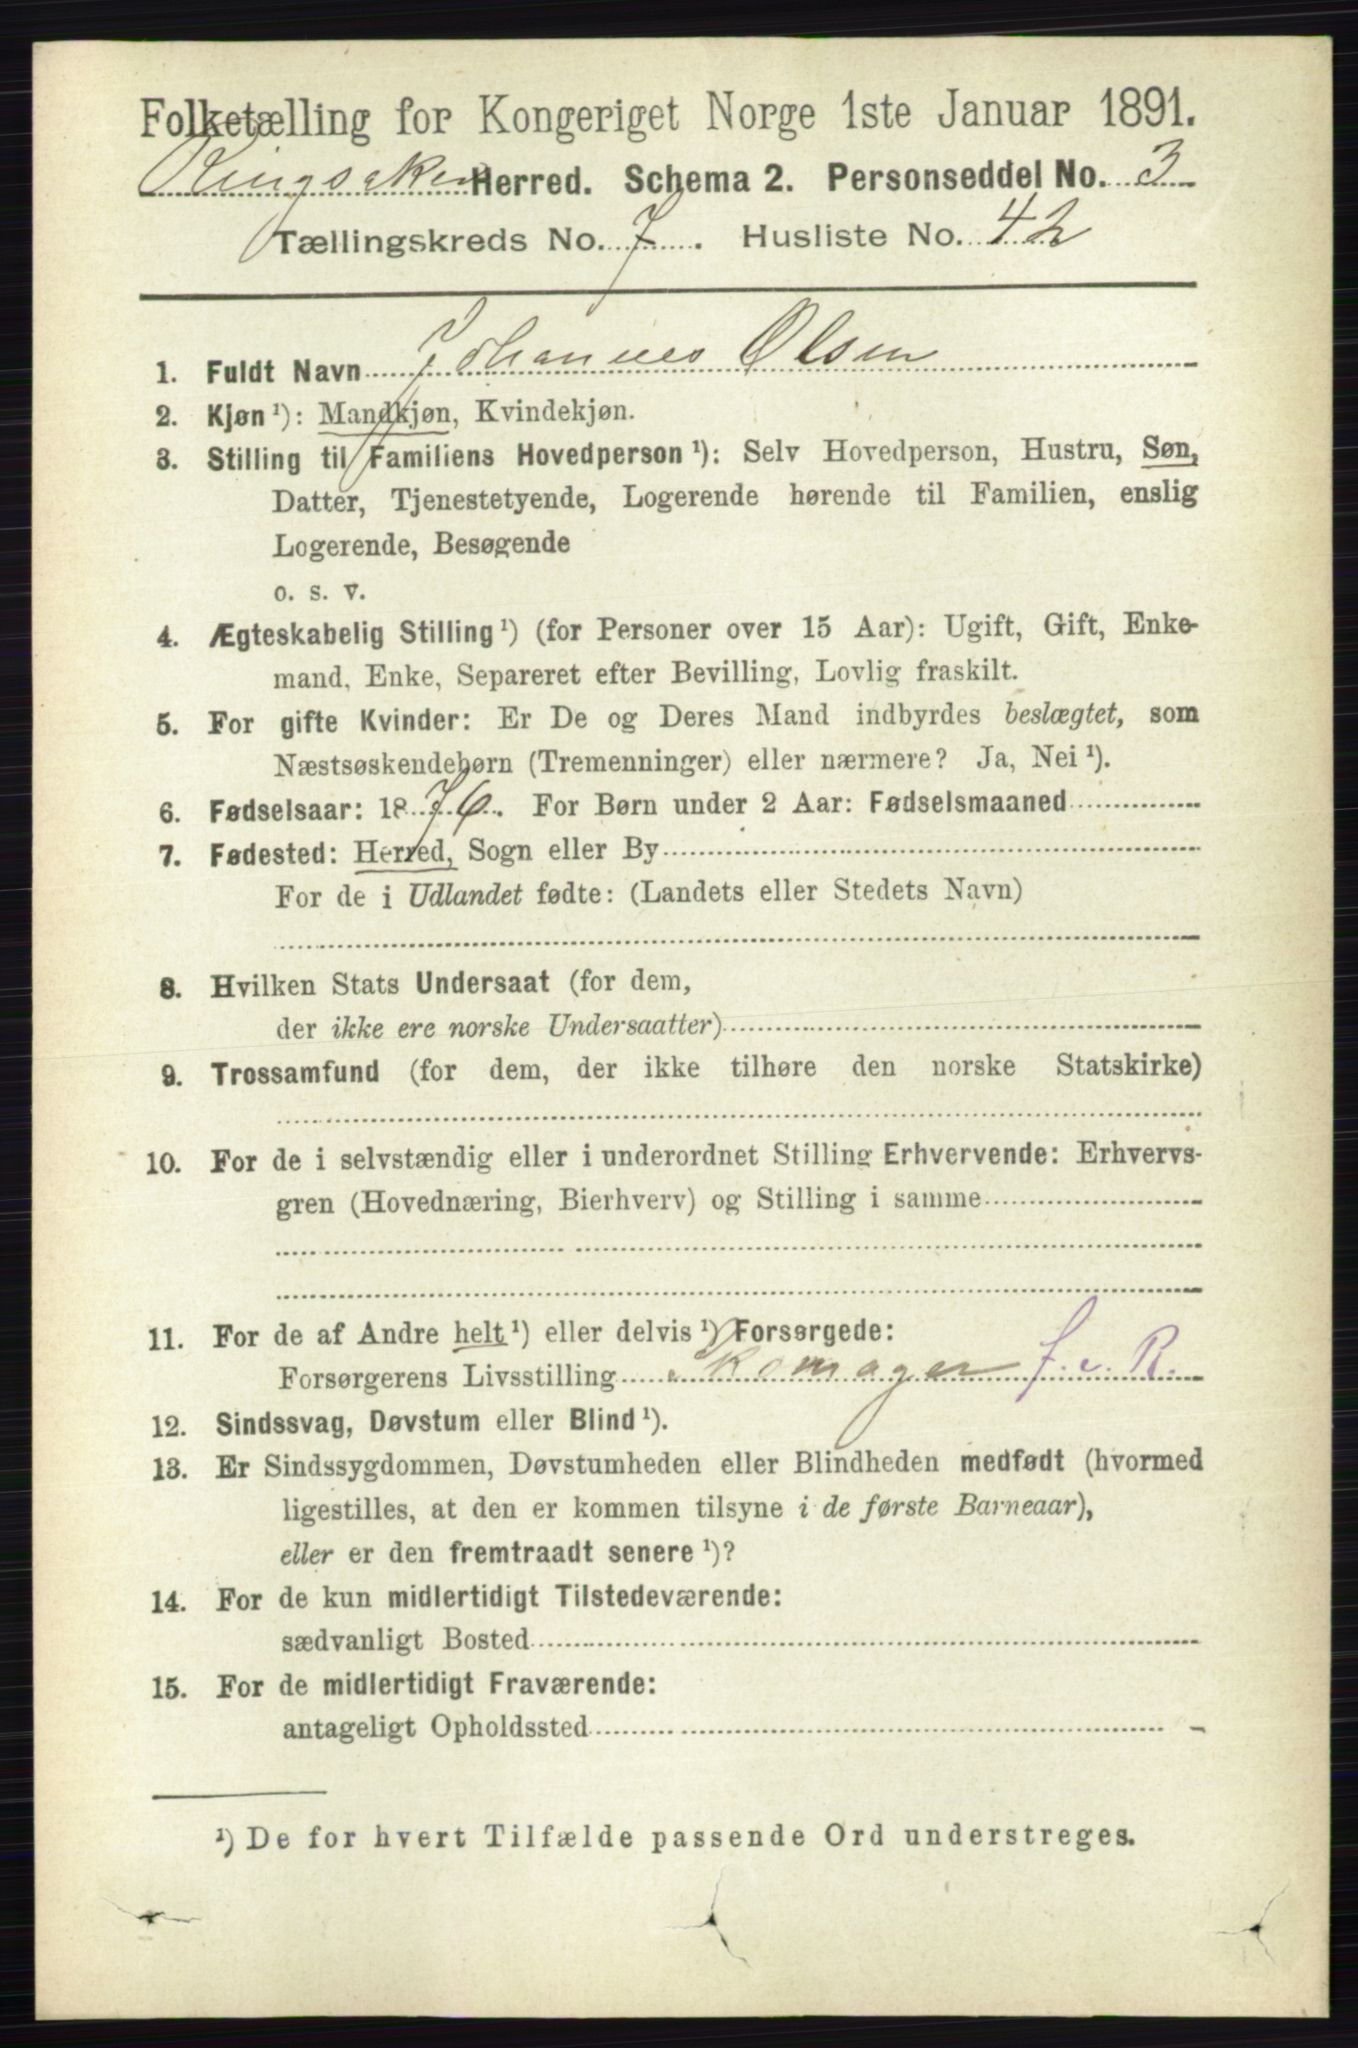 Folketælling for Kongeriget Norge 1ste Januar 1891.
Ringsaker Herred. Schema 2. Personseddel No. 3
Tællingskreds No. 7. Husliste No. 42
1. Fuldt Navn Johannes Olsen
2. Kjøn ¹): Mandkjøn, Kvindekjøn.
3. Stilling til Familiens Hovedperson ¹): Selv Hovedperson, Hustru, Søn,
Datter, Tjenestetyende, Logerende hørende til Familien, enslig
Logerende, Besøgende
o. s. v.
4. Ægteskabelig Stilling ¹) (for Personer over 15 Aar): Ugift, Gift, Enke-
mand, Enke, Separeret efter Bevilling, Lovlig fraskilt.
5. For gifte Kvinder: Er De og Deres Mand indbyrdes beslægtet, som
Næstsøskendebørn (Tremenninger) eller nærmere? Ja, Nei ¹).
6. Fødselsaar: 1876. For Børn under 2 Aar: Fødselsmaaned
7. Fødested: Herred, Sogn eller By
For de i Udlandet fødte: (Landets eller Stedets Navn)
8. Hvilken Stats Undersaat (for dem,
der ikke ere norske Undersaatter)
9. Trossamfund (for dem, der ikke tilhøre den norske Statskirke)
10. For de i selvstændig eller i underordnet Stilling Erhvervende: Erhvervs-
gren (Hovednæring, Bierhverv) og Stilling i samme
11. For de af Andre helt ¹) eller delvis ¹) Forsørgede:
Forsørgerens Livsstilling Skomager f. e. R.
12. Sindssvag, Døvstum eller Blind ¹).
13. Er Sindssygdommen, Døvstumheden eller Blindheden medfødt (hvormed
ligestilles, at den er kommen tilsyne i de første Barneaar),
eller er den fremtraadt senere ¹)?
14. For de kun midlertidigt Tilstedeværende:
sædvanligt Bosted
15. For de midlertidigt Fraværende:
antageligt Opholdssted
¹) De for hvert Tilfælde passende Ord understreges.